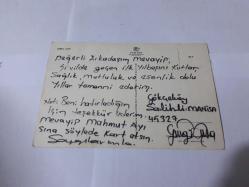 Değerli Arkadaşım Mevayip,
Sivilde geçen ilk Yılbaşını Kutlar
Sağlık, mutluluk ve esenlik dolu
Yıllar temenni ederim.
Not: Beni hatırladığın
İçin Teşekkür Ederim.
Mevayip Mahmut Ayı
sına söylede Kart atsın.
Gökçeköy
Salihli-MANİSA
45327